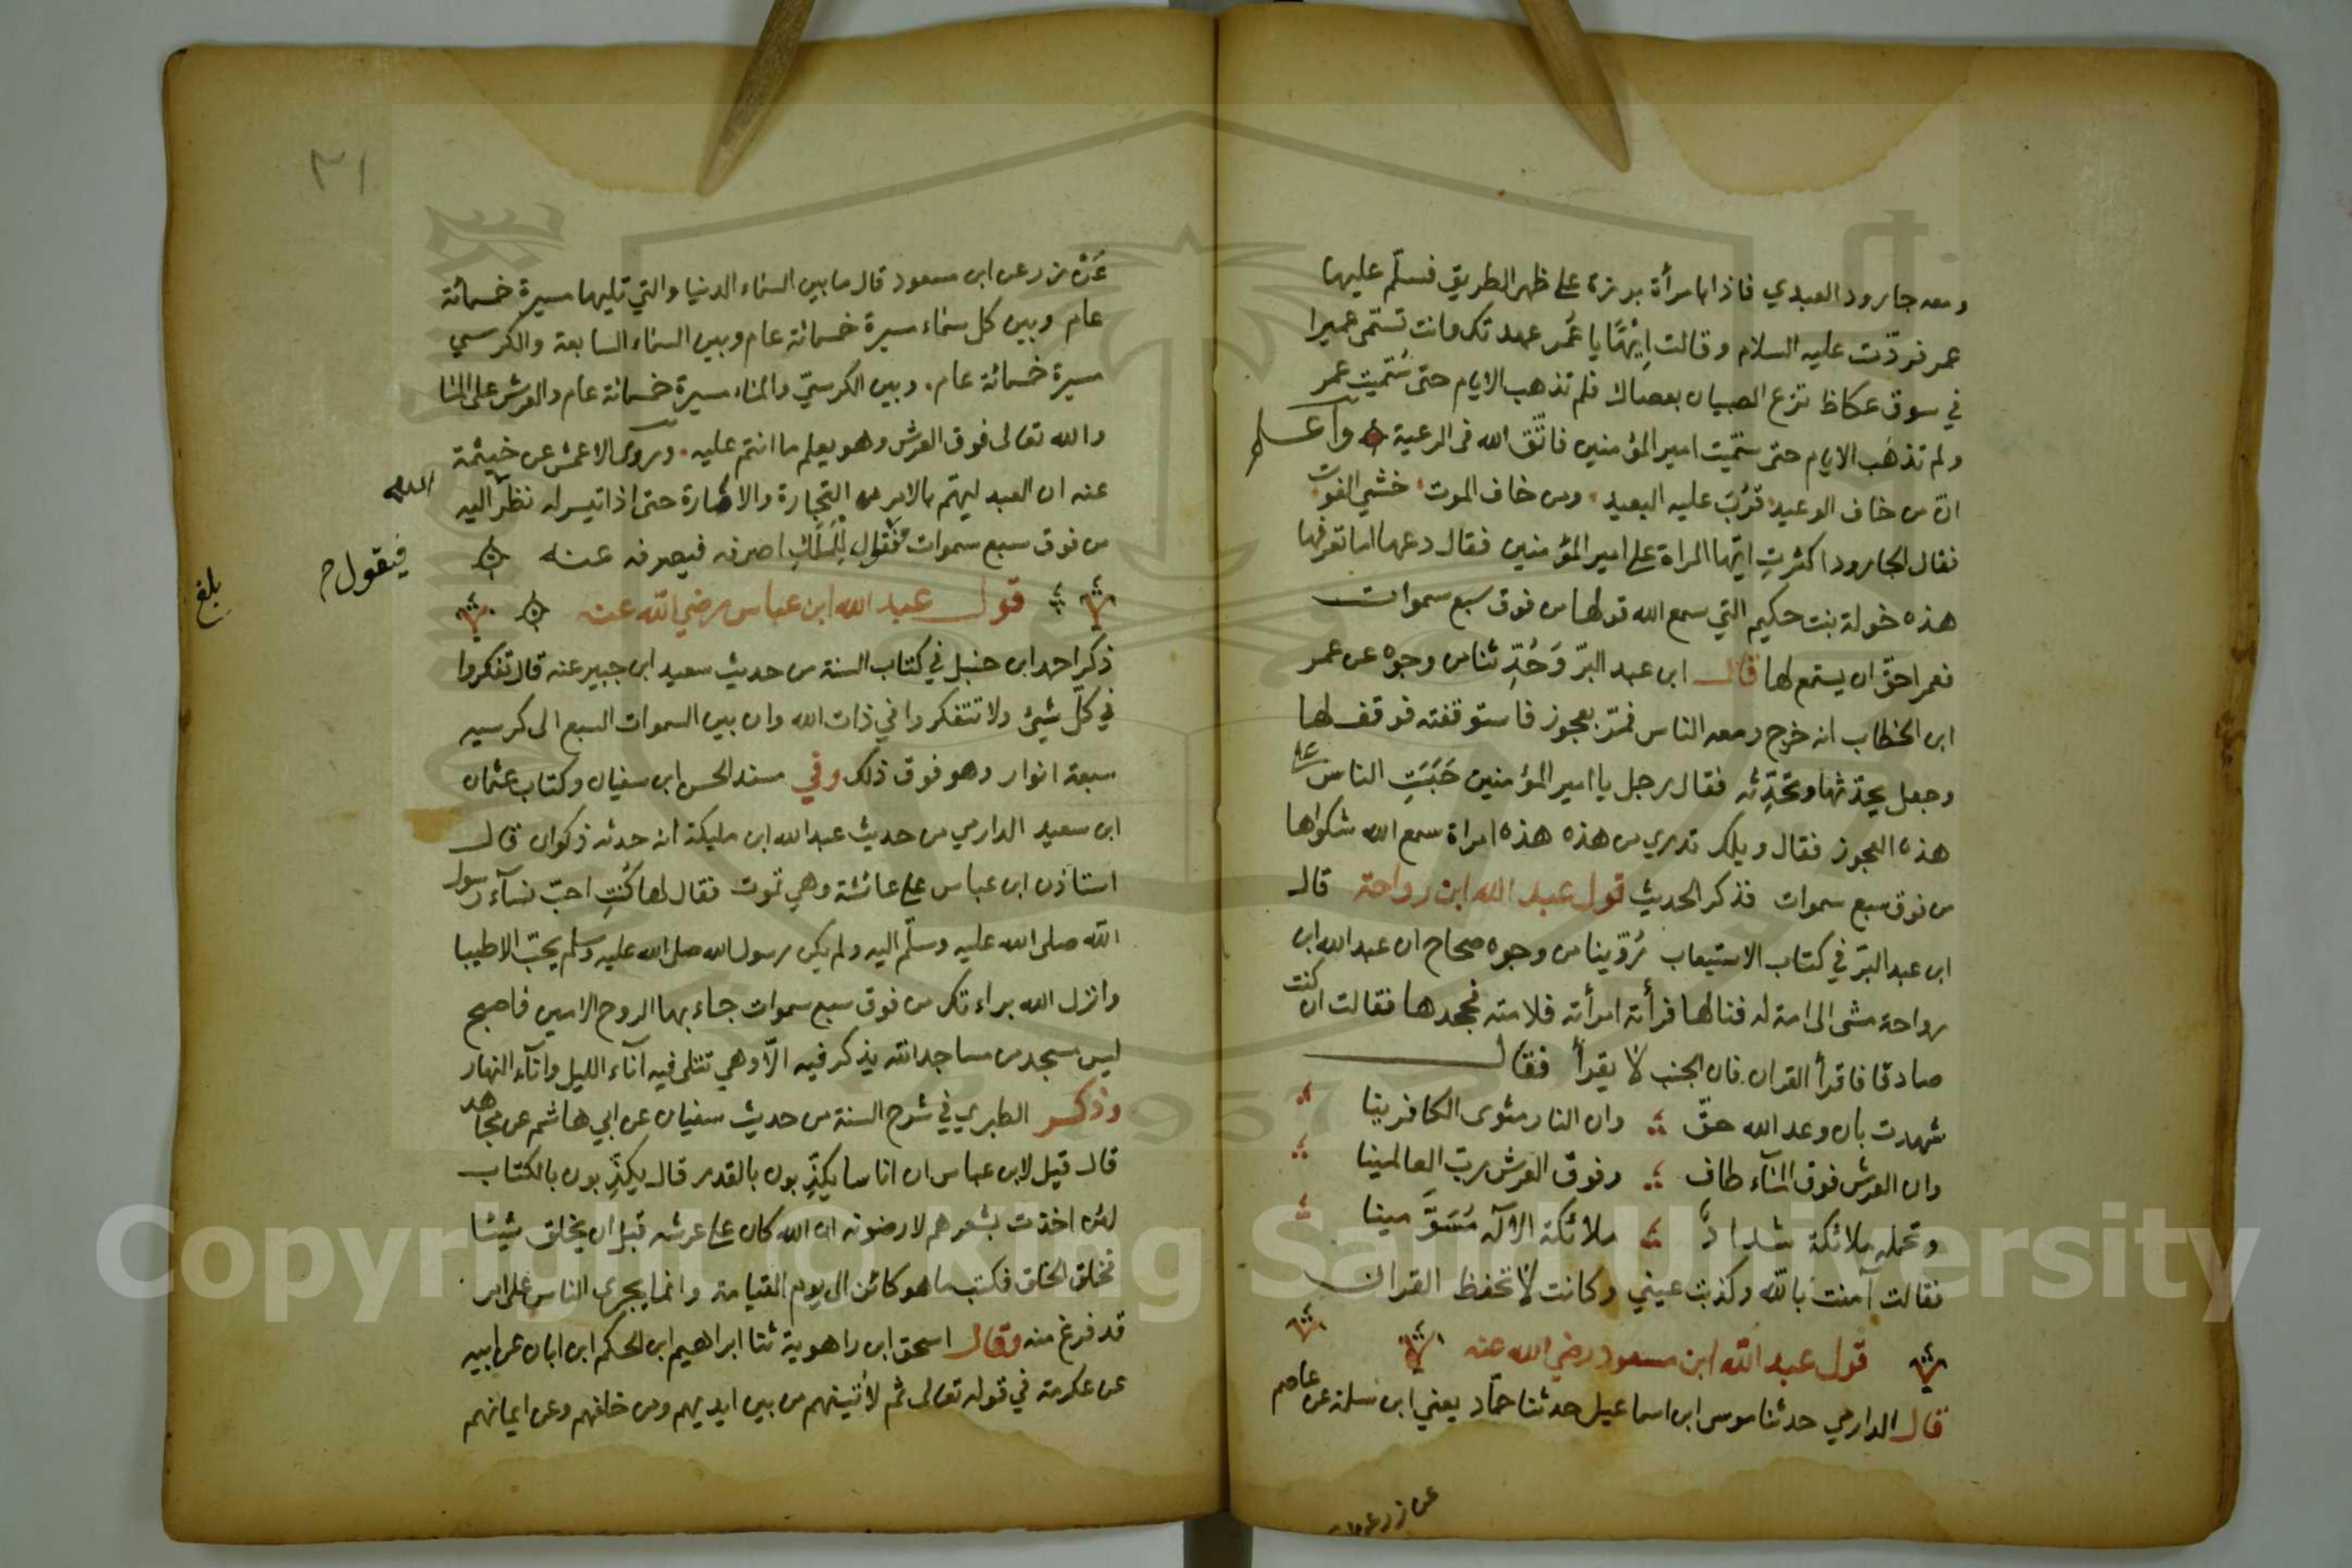 ومعه جارود العبدي فاذا امرأة برزة على ظهر الطريق فسلّم عليها
عمر فردّت عليه السلام وقالت إيْهًا يا عُمر عهدتك وانت تسمّى عميرا
في سوق عكاظ تزع الصبيان بعصاك فلم تذهب الايام حتى سُمّيت عمر
ولم تذهب الايام حتى سمّيت امير المؤمنين فاتّق الله فى الرعية واعلم
انّ من خاف الوعيد قرُبَ عليه البعيد ومن خاف الموت خشي الفوت
فقال الجارود اكثرتِ ايتها المراة على امير المؤمنين فقال دعها اما تعرفها
هذه خولة بنت حكيم التي سمع الله قولها من فوق سبع سموات
فعمر احقّ ان يستمع لها قال ابن عبد البرّ وَحُدِّثنا من وجوه عن عمر
ابن الخطاب انه خرج ومعه الناس فمرّ بعجوز فاستوقفته فوقف لها
وجعل يحدّثها وتحدِّثه فقال رجل يا امير المؤمنين حَبَسَتِ الناس على
هذه العجوز فقال ويلك تدري من هذه هذه امراة سمع الله شكواها
من فوق سبع سموات فذكر الحديث قول عبد الله ابن رواحة قال
ابن عبد البرّ في كتاب الاستيعاب رُوّينا من وجوه صحاح ان عبد الله ابن
رواحة مشى الى امة له فنالها فرأته امرأته فلامته فجحدها فقالت ان كنت
صادقا فاقرأ القران فان الجنب لا يقرأ فقال
شهدت بان وعد الله حقّ وان النار مثوى الكافرينا
وان العرش فوق الماء طاف وفوق العرش ربّ العالمينا
وتحمله ملائكة شدادٌ ملائكة الآله مُسَوَّمينا
فقالت آمنت بالله وكذبت عيني وكانت لا تحفظ القران
قول عبد الله ابن مسعود رضي الله عنه
قال الدارمي حدثنا موسى ابن اسماعيل حدثنا حمّاد يعني ابن سلمة عن عاصم
عن زر عن
٣١
عَنْ زر عن ابن مسعود قال ما بين السماء الدنيا والتي تليها مسيرة خمسمائة
عام وبين كل سماء مسيرة خمسمائة عام وبين السماء السابعة والكرسي
مسيرة خمسمائة عام وبين الكرسيّ والماء مسيرة خمسمائة عام والعرش على الما
والله تعالى فوق العرش وهو يعلم ما انتم عليه وروى الاعمش عن خيثمة
عنه ان العبد ليهتم بالامر من التجارة والامارة حتى اذا تيسر له نظر اليه
الله
من فوق سبع سموات فيقول لِلْمَلَكِ اصرفه فيصرفه عنه
فيقول
بلغ
قول عبد الله ابن عباس رضي الله عنه
ذكر احمد ابن حنبل في كتاب السنة من حديث سعيد ابن جبير عنه قال تفكروا
في كلّ شيئ ولا تتفكروا في ذات الله وان بين السموات السبع الى كرسيه
سبعة انوار وهو فوق ذلك وفي مسند الحسن ابن سفيان وكتاب عثمان
ابن سعيد الدارمي من حديث عبد الله ابن مليكة انه حدثه ذكوان قال
استاذن ابن عباس على عائشة وهي تموت فقال لها كُنتِ احبّ نسآء رسول
الله صلى الله عليه وسلّم اليه ولم يكن رسول الله صلى الله عليه وسلم يحبّ الا طيبا
وانزل الله براءتك من فوق سبع سموات جاء بها الروح الامين فاصبح
ليس مسجد من مساجد الله يذكر فيه الّا وهي تتلى فيه آناء الليل وآنآء النهار
وذكر الطبري في شرح السنة من حديث سفيان عن ابي هاشم عن مجاهد
قال قيل لابن عباس ان اناسا يكذّبون بالقدر قال يكذّبون بالكتاب
لئن اخذت بشعرهم لارضونه ان الله كان على عرشه قبل ان يخلق شيئا
فخلق الخلق فكتب ما هو كائن الى يوم القيامة وانما يجرى الناس على امر
قد فرغ منه وقال اسحق ابن راهوية ثنا ابراهيم ابن الحكم ابن ابان عن ابيه
عن عكرمة في قوله تعالى ثم لأتينهم من بين ايديهم ومن خلفهم وعن ايمانهم
Copyright © King Saud University
1957